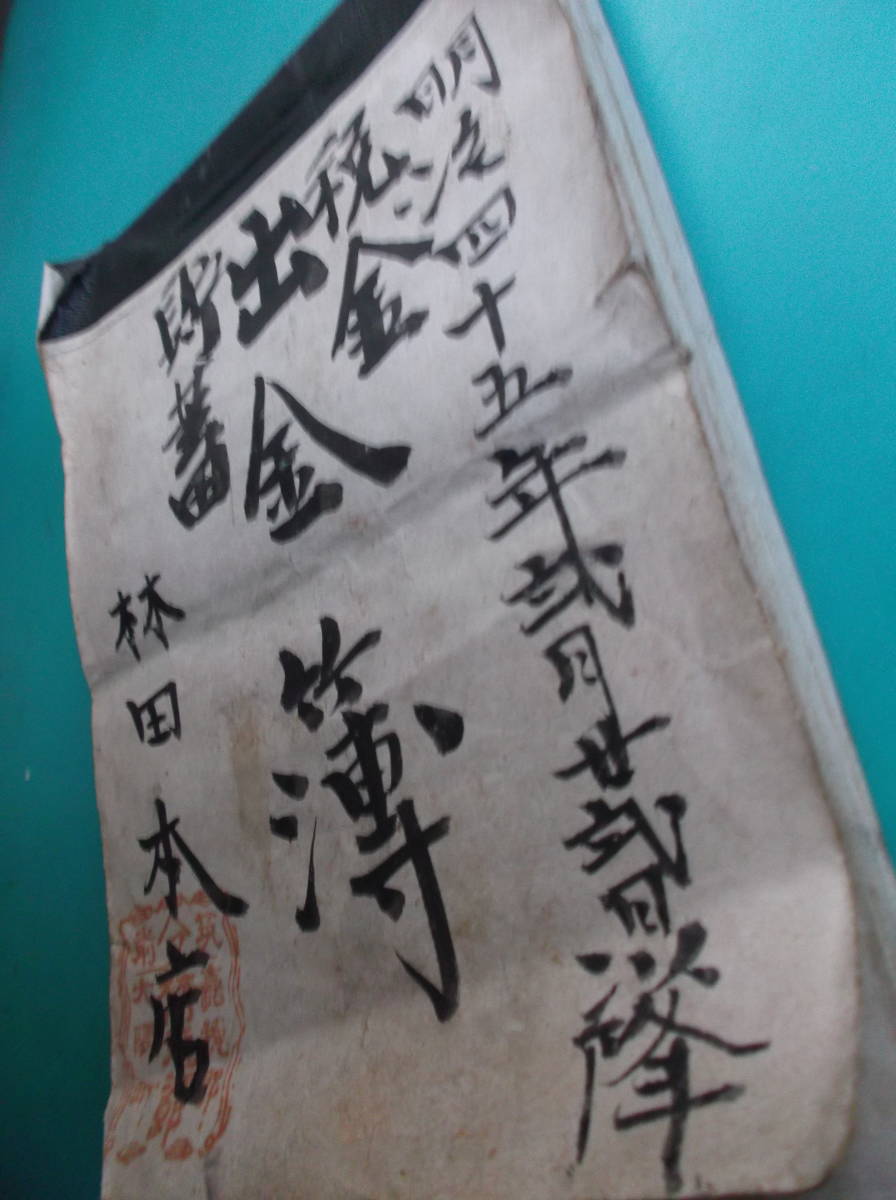 明治四十五年貳月廿貳日以降
税金
出金
貯蓄
簿
林田本店